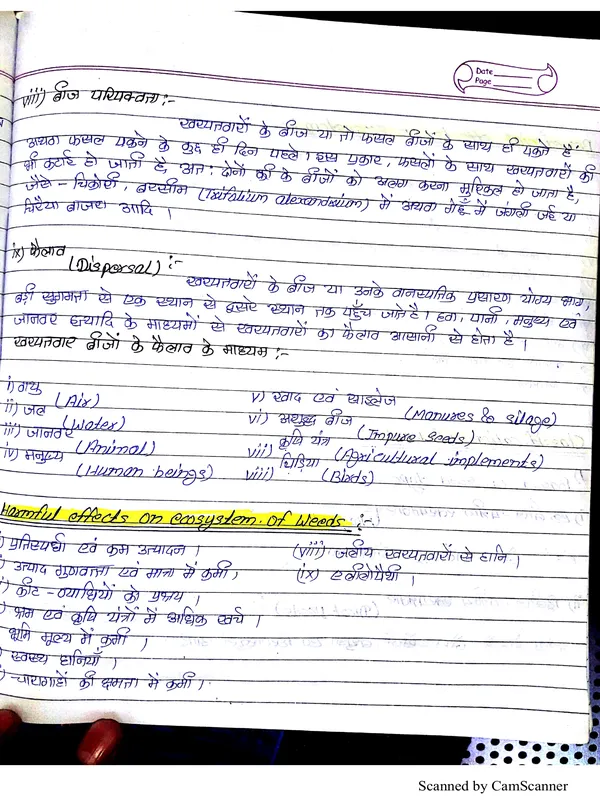 Date
Page
viii) बीज परिपक्वता :-
खरपतवारों के बीज या तो फसल बीजों के साथ ही पकते हैं
अथवा फसल पकने के कुछ ही दिन पहले। इस प्रकार, फसलों के साथ खरपतवारों की
भी कटाई हो जाती है, अतः दोनों की के बीजों को अलग करना मुश्किल हो जाता है,
जैसे - चिकोरी, बरसीम (Trifolium alexandrium) में अथवा गेहूँ में जंगली जई या
चिरैया बाजरा आदि।
ix) फैलाव
(Dispersal) :-
खरपतवारों के बीज या उनके वानस्पतिक प्रसारण योग्य भाग,
बड़ी सुगमता से एक स्थान से दूसरे स्थान तक पहुँच जाते है। हवा, पानी, मनुष्य एवं
जानवर इत्यादि के माध्यमों से खरपतवारों का फैलाव आसानी से होता है।
खरपतवार बीजों के फैलाव के माध्यम :-
i) वायु (Air)
ii) जल (Water)
iii) जानवर (Animal)
iv) मनुष्य (Human beings)
v) खाद एवं साइलेज (Manures & silage)
vi) अशुद्ध बीज (Impure seeds)
vii) कृषि यंत्र (Agricultural implements)
viii) चिड़िया (Birds)
Harmful effects on ecosystem of Weeds :-
) प्रतिस्पर्धा एवं कम उत्पादन।
) उत्पाद गुणवत्ता एवं मात्रा में कमी,
) कीट - व्याधियों को प्रश्रय।
) श्रम एवं कृषि यंत्रों में अधिक खर्च।
भूमि मूल्य में कमी।
) स्वस्थ हानियाँ।
) चारागाहों की क्षमता में कमी।
(viii) जलीय खरपतवारों से हानि।
(ix) एलीलोपैथी।
Scanned by CamScanner